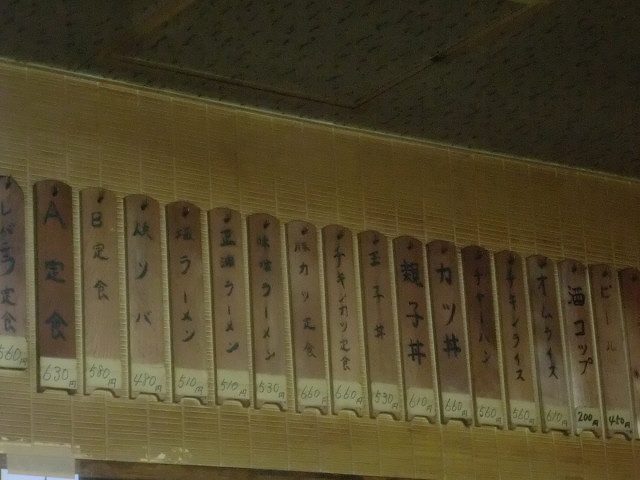 レバニラ定食 560円
A定食 630円
B定食 580円
焼ソバ 480円
塩ラーメン 510円
正油ラーメン 510円
味噌ラーメン 530円
豚カツ定食 660円
チキンカツ定食 660円
玉子丼 530円
親子丼 610円
カツ丼 660円
チャーハン 560円
チキンライス 560円
オムライス 610円
酒コップ 200円
ビール 450円